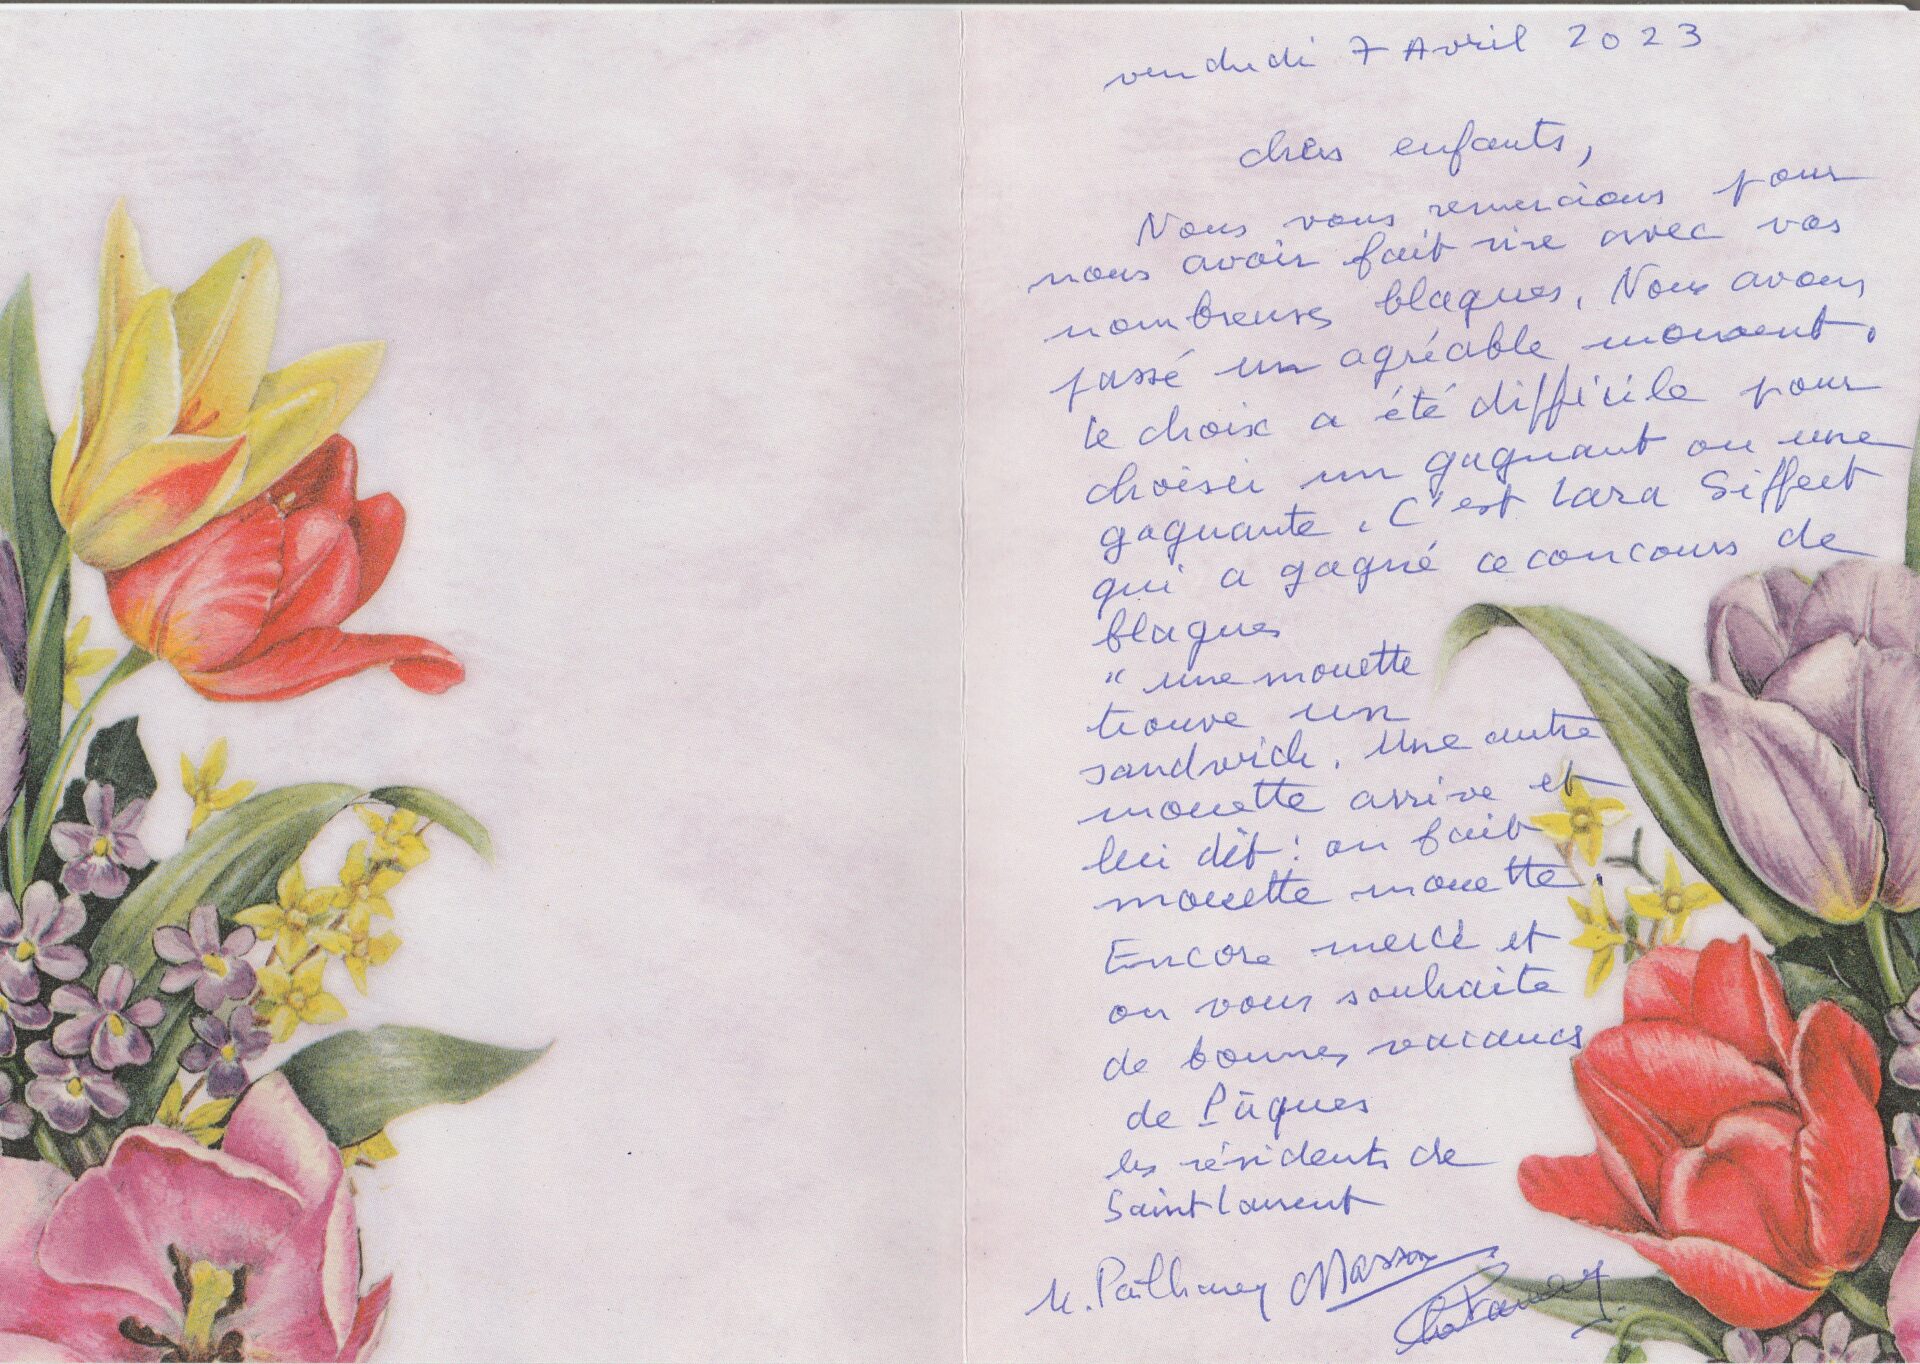 vendredi 7 Avril 2023
chers enfants,
Nous vous remercions pour
nous avoir fait rire avec vos
nombreuses blagues. Nous avons
passé un agréable moment.
Le choix a été difficile pour
choisir un gagnant ou une
gagnante. C'est Lara Siffert
qui a gagné ce concours de
blagues
" une mouette
trouve un
sandwich. Une autre
mouette arrive et
lui dit : on fait
mouette mouette.
Encore merci et
on vous souhaite
de bonnes vacances
de Pâques
les résidents de
Saint Laurent
Masson